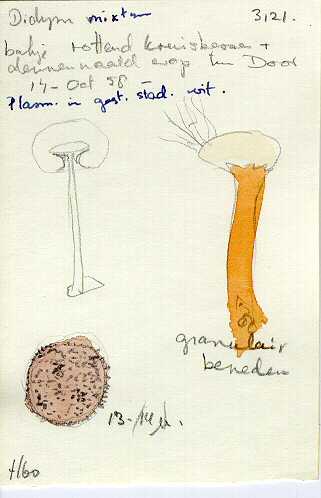 Didym mixtum 3121.
bakje rottend kruisbessen +
dennennaald erop Door
14-Oct 58
Plasm. in gest. stad. wit.
granulair
beneden
13-14 µ.
4/60